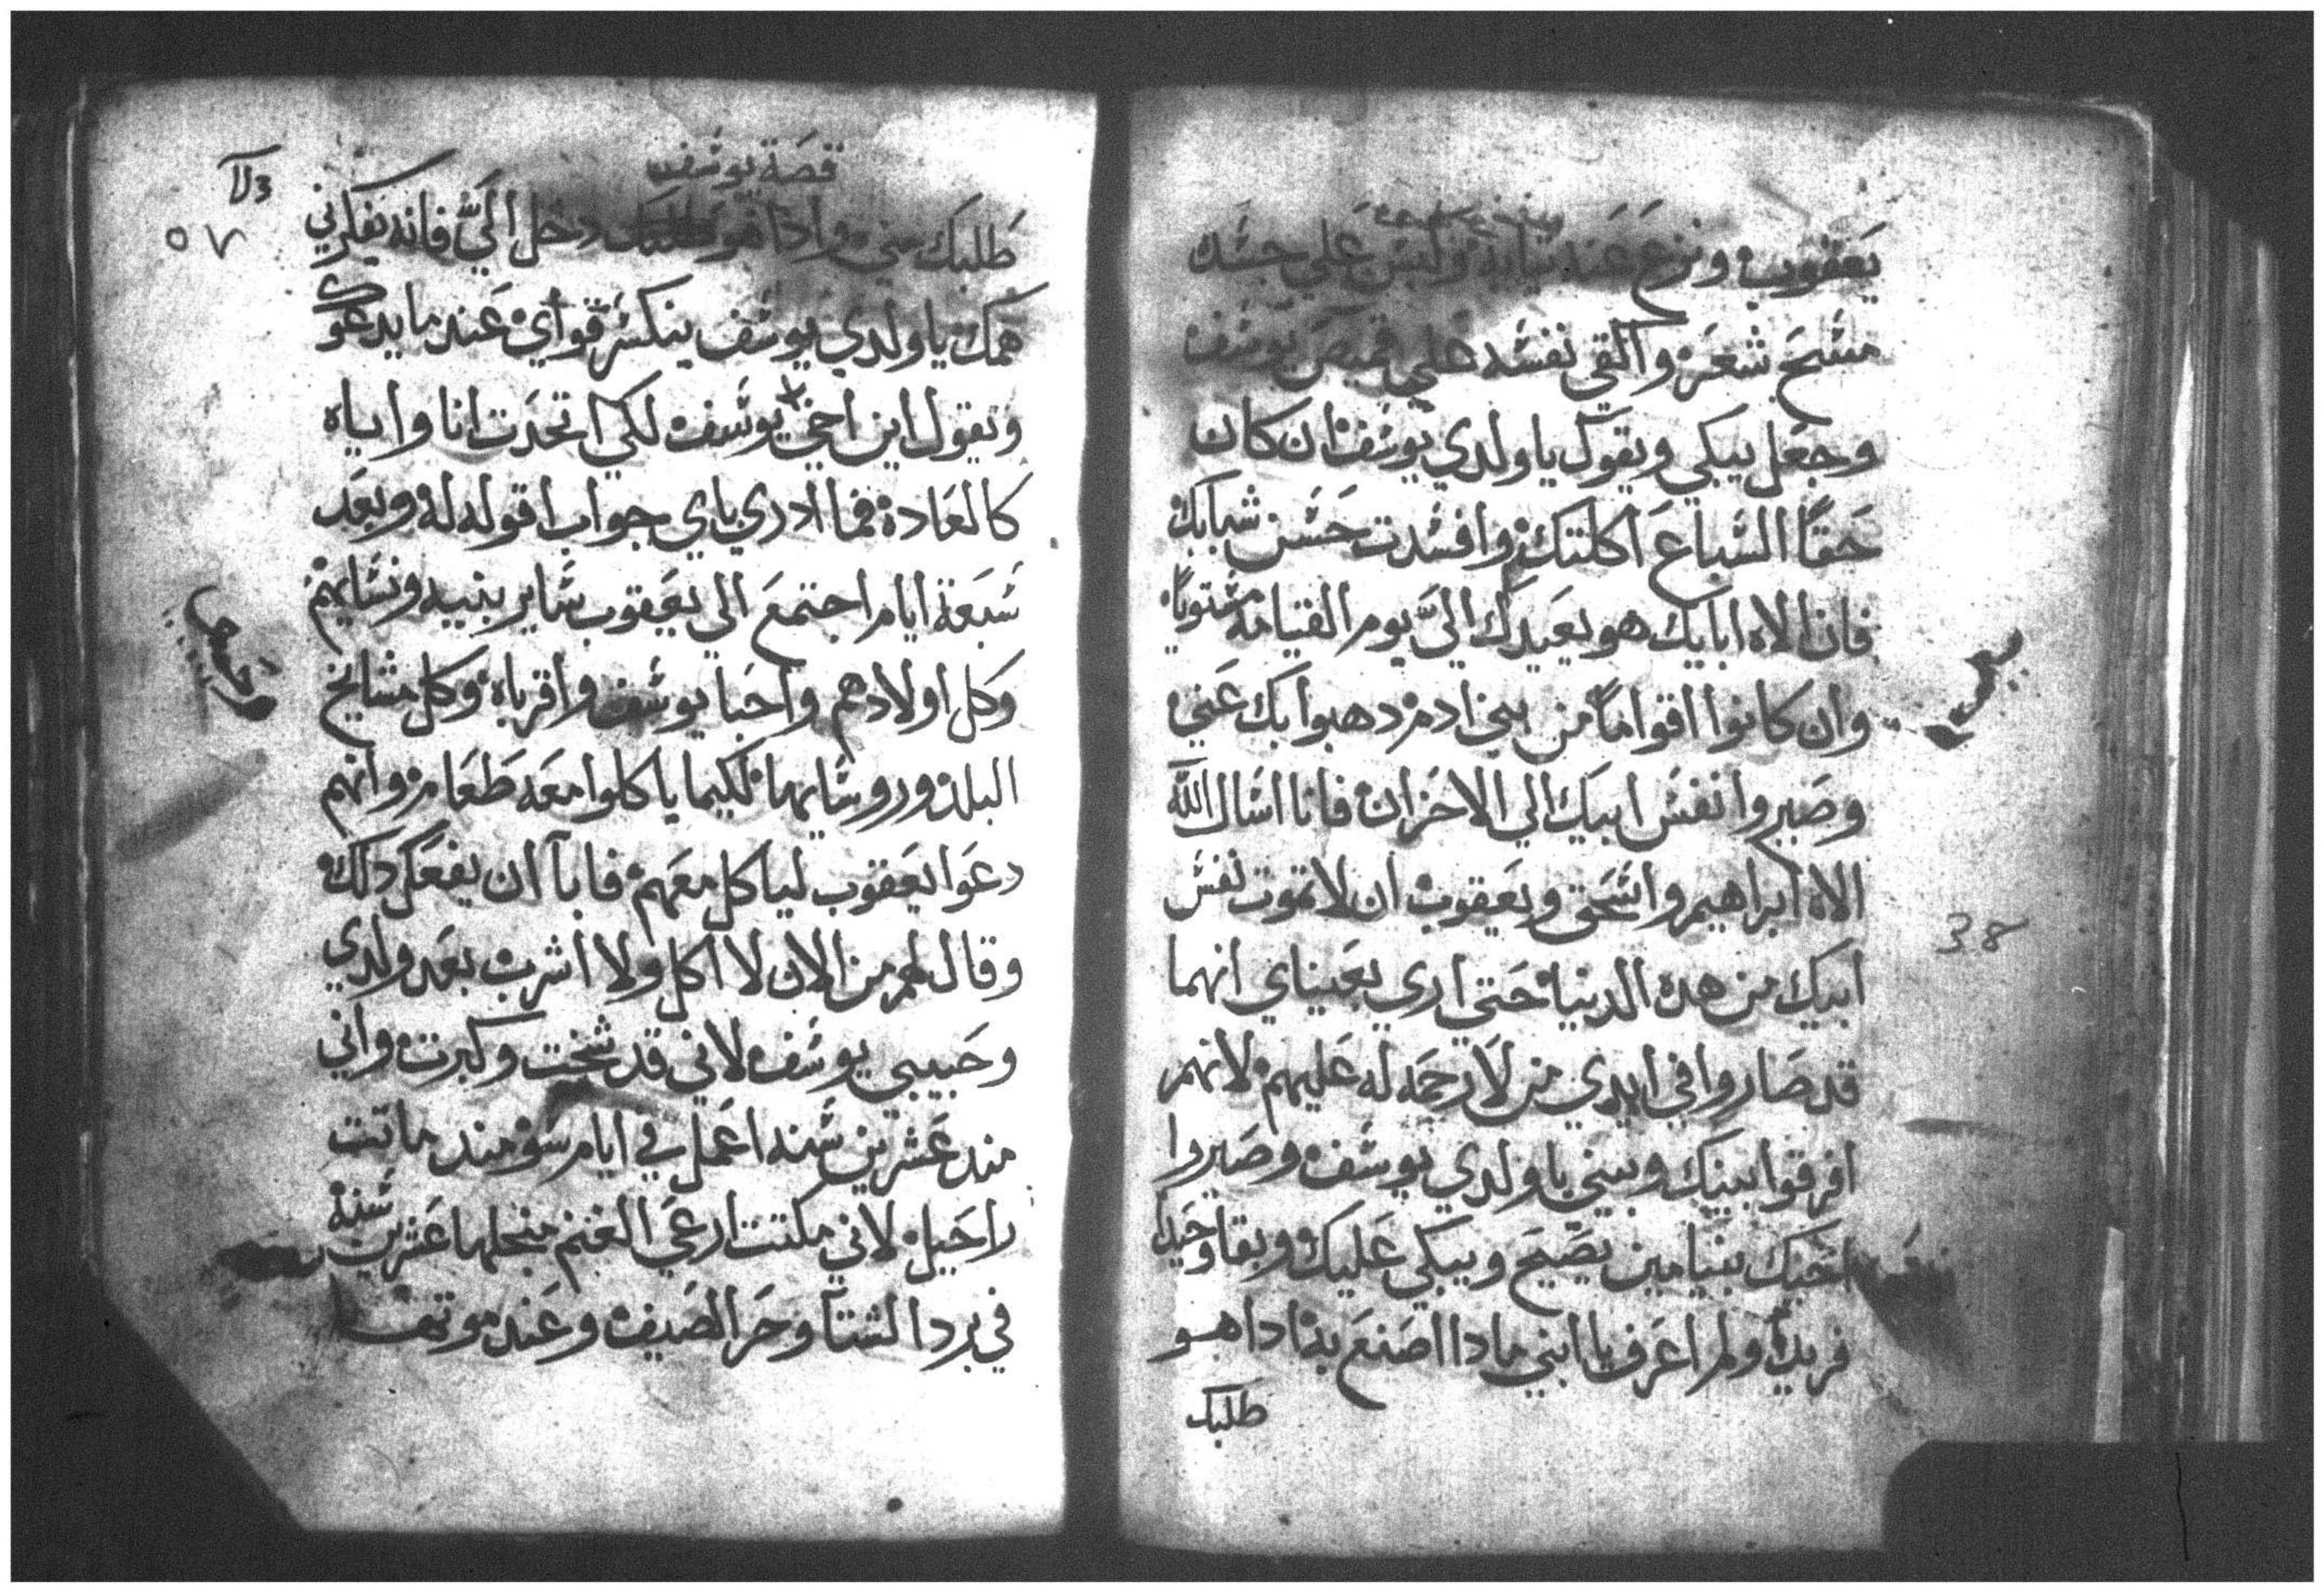 يعقوب ونزع عنه ثيابه ولبس علي جسده
مسح شعر والقي نفسه علي قميص يوسف
وجعل يبكي ويقول يا ولدي يوسف ان كان
حقًا السباع اكلتك وافسدت حسن شبابك
فان الاه ابايك هو يعيدك اليّ يوم القيامة
وان كانوا اقوامًا من بني ادم دهبوا بك عني
وصيروا نفس ابيك الي الاحزان فانا اسال الله
الاه ابراهيم واسحق ويعقوب ان لا تموت نفس
ابيك من هده الدنيا حتي اري بعيناي انهما
قد صاروا في ايدي من لا رحمه له عليهم لانهم
افرقوا بينك وبيني يا ولدي يوسف وصيروا
اخيك بنيامين يصيح ويبكي عليك وبقا وحيد
فريد ولم اعرف يا ابني مادا اصنع به ادا هو
طلبك
قصة يوسف
٥٧
طلبك مني وادا هو دخل اليّ فانه يفكرني
همك يا ولدي يوسف ينكسر قواي عند ما يدعوك
وتقول اين اخي يوسف لكي اتحدت انا واياه
كالعادة فما ادري باي جواب اقوله له وبعد
سبعة ايام اجتمع الي يعقوب ساير بنيه ونسايهم
وكل اولادهم واحبا يوسف واقرباه وكل مشايخ
البلد وروسايها لكيما ياكلوا معه طعام وانهم
دعوا يعقوب لياكل معهم فابآ ان يفعل دلك
وقال لهم من الان لا اكل ولا اشرب بعد ولدي
وحبيبي يوسف لاني قد شخت وكبرت واني
مند عشرين سنه اعمل في ايام سو مند ماتت
راحيل لاني مكتت ارعي الغنم منجلها عشرين سنة
في برد الشتآ وحر الصيف وعند موتها
38